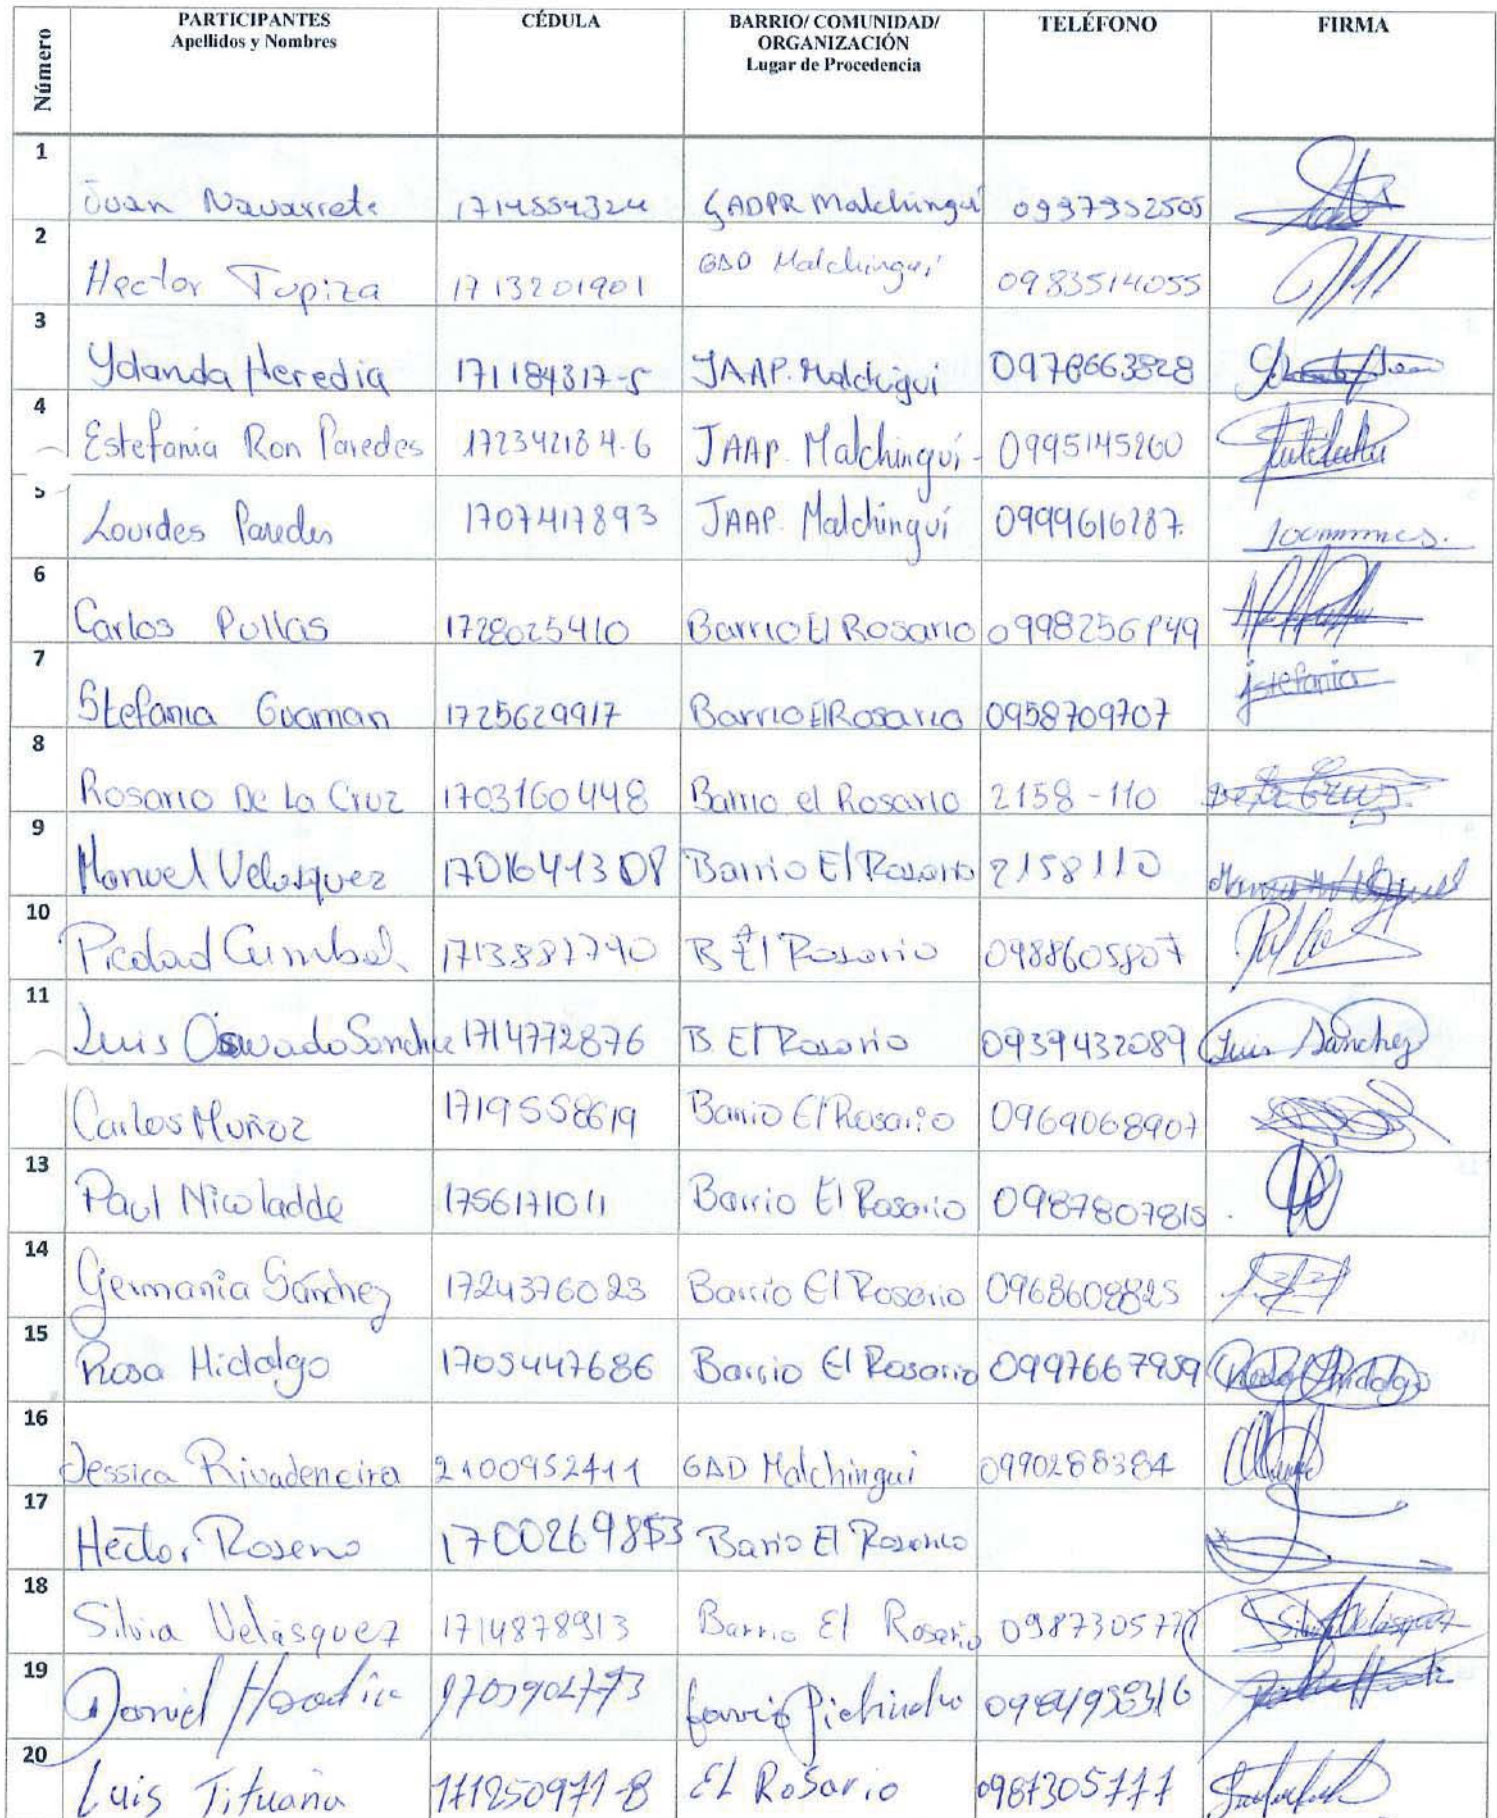 Número PARTICIPANTES Apellidos y Nombres CÉDULA BARRIO/ COMUNIDAD/ ORGANIZACIÓN Lugar de Procedencia TELÉFONO FIRMA
1 Juan Navarrete 1714554324 GADPR Malchinguí 0997952505
2 Hector Tupiza 1713201901 GAD Malchinguí 0983514055
3 Yolanda Heredia 171184317-5 JAAP. Malchiguí 0978663828
4 Estefania Ron Paredes 172342184-6 JAAP. Malchinguí- 0995145260
5 Lourdes Paredes 1707417893 JAAP. Malchinguí 0999616287.
6 Carlos Pullas 1728025410 Barrio El Rosario 0998256849
7 Stefania Guaman 1725629917 Barrio El Rosario 0958709707 jstefania
8 Rosario De La Cruz 1703160448 Barrio el Rosario 2158-110 De la Cruz.
9 Manuel Velasquez 1701641308 Barrio El Rosario 2158110
10 Piedad Cumbal 1713887790 B El Rosario 0988605807
11 Luis Oswado Sanchez 1714772876 B. El Rosario 0939432089 Luis Sánchez
Carlos Muñoz 1719558619 Barrio El Rosario 0969068907
13 Paul Nicoladde 1756171011 Barrio El Rosario 0987807815
14 Germania Sánchez 1724376023 Barrio El Rosario 0968608825
15 Rosa Hidalgo 1705447686 Barrio El Rosario 0997667959 Rosa Hidalgo
16 Jessica Rivadeneira 2100952411 GAD Malchingui 0990288384
17 Hector Roseno 1700269853 Barrio El Rosario
18 Silvia Velásquez 1714878913 Barrio El Rosario 0987305777 Silvia Velasquez
19 Daniel Heredia 1705904773 barrio Pichincha 0984958316
20 Luis Tituaña 171250971-8 EL Rosario 0987305777